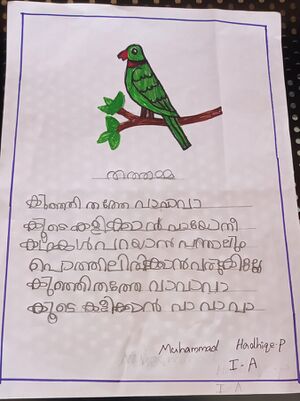 തത്തമ്മ
കുഞ്ഞി തത്തേ വാവാവാ
കൂടെ കളിക്കാൻ വായോനീ
കഥകൾ പറയാൻ
പൊത്തിലിരിക്കാൻ
കുഞ്ഞിതത്തേ വാവാവാ
കൂടെ കളിക്കാൻ വാ വാ വാ
Muhammad Hadhiqe. P
I - A
I A